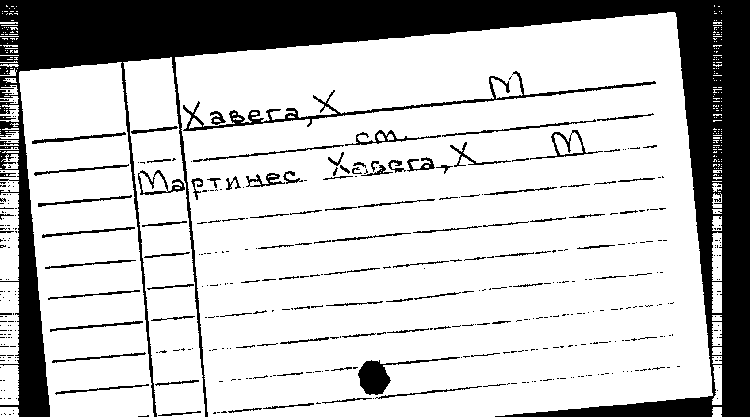 Хавега, Х М
см.
Мартинес Хавега, Х М